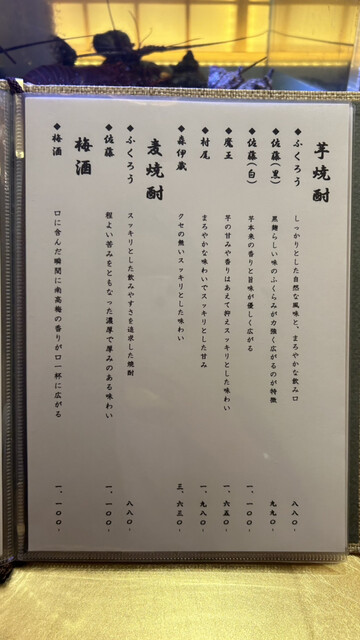 芋焼酎
◆ふくろう しっかりとした自然な風味と、まろやかな飲み口 八八〇-
◆佐藤(黒) 黒麹らしい味のふくらみが力強く広がるのが特徴 九九〇-
◆佐藤(白) 芋本来の香りと旨味が優しく広がる 一、一〇〇-
◆魔王 芋の甘みや香りはあえて抑えスッキリとした味わい 一、六五〇-
◆村尾 まろやかな味わいでスッキリとした甘み 一、九八〇-
◆森伊蔵 クセの無いスッキリとした味わい 三、六三〇-
麦焼酎
◆ふくろう スッキリとした飲みやすさを追求した焼酎 八八〇-
◆佐藤 程よい苦みをともなった濃厚で厚みのある味わい 一、一〇〇-
梅酒
◆梅酒 口に含んだ瞬間に南高梅の香りが口一杯に広がる 一、一〇〇-